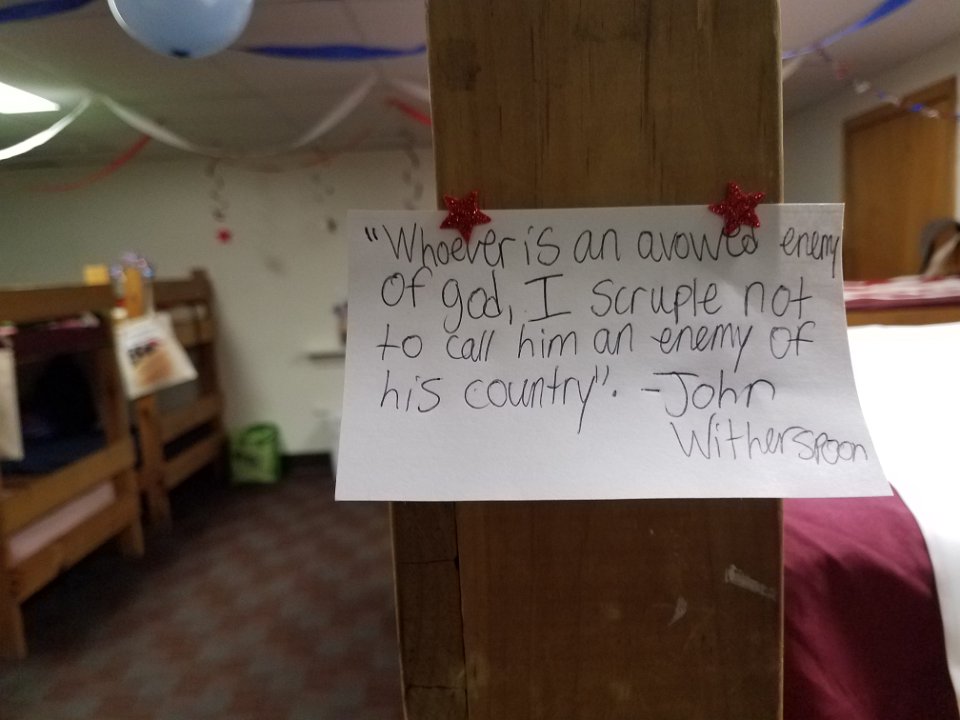 "Whoever is an avowed enemy
of god, I scruple not
to call him an enemy of
his country". -John
Witherspoon